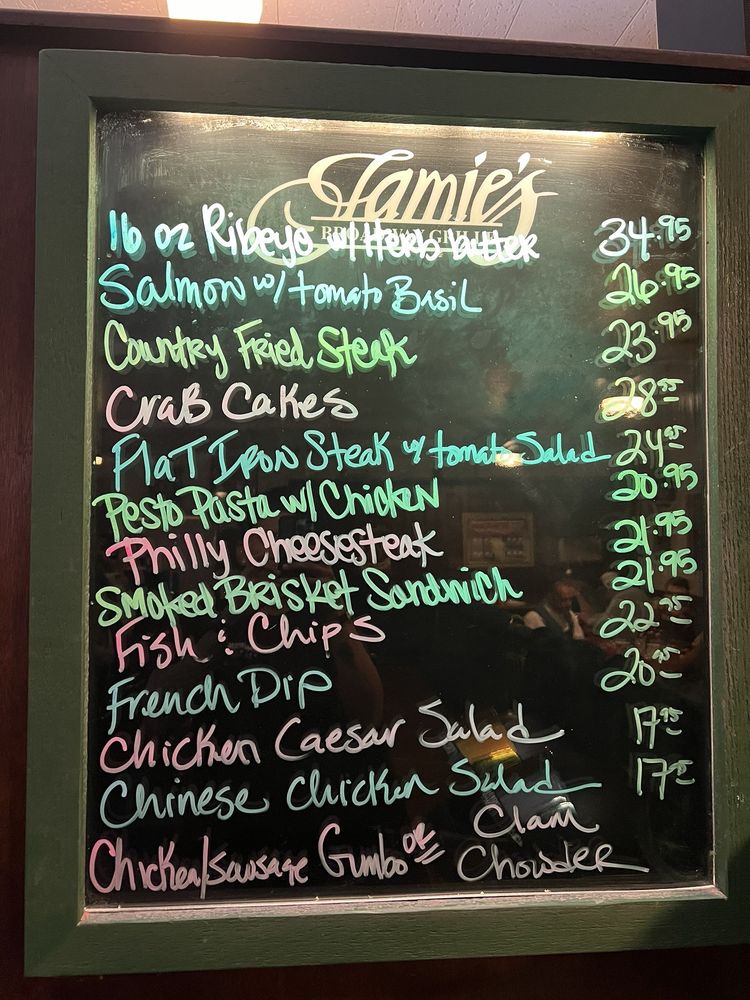 Jamie's
BROADWAY GRILLE
16 oz Ribeye w/ Herb butter 34.95
Salmon w/ tomato Basil 26.95
Country Fried Steak 23.95
Crab Cakes 28.95
Flat Iron Steak w/ tomato Salad 24.95
Pesto Pasta w/ Chicken 20.95
Philly Cheesesteak 21.95
Smoked Brisket Sandwich 21.95
Fish & Chips 22.95
French Dip 20.95
Chicken Caesar Salad 17.95
Chinese Chicken Salad 17.95
Chicken/Sausage Gumbo or Clam Chowder